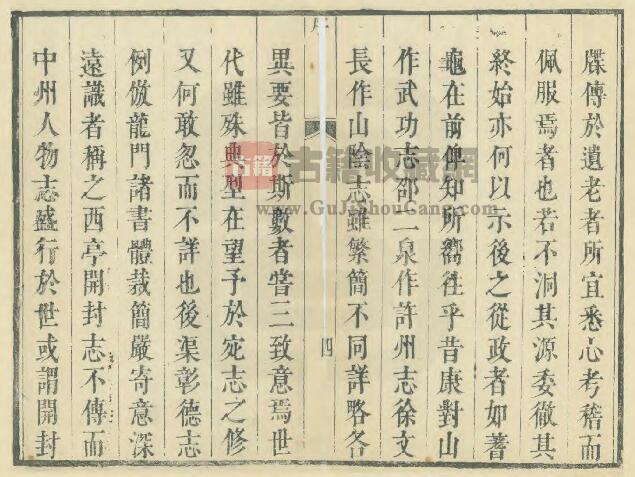 牒傳於遺老者所宜悉心考稽而
佩服焉者也若不洞其源委徹其
終始亦何以示後之從政者如蓍
龜在前俾知所嚮往乎昔康對山
作武功志邵二泉作許州志徐文
長作山陰志雖繁簡不同詳略各
序
四
異要皆於斯數者嘗三致意焉世
代雖殊典型在望予於宛志之修
又何敢忽而不詳也後渠彰德志
例倣龍門諸書體裁簡嚴寄意深
遠識者稱之西亭開封志不傳而
中州人物志盛行於世或謂開封
古籍
古籍收藏网
www.GuJiShouCang.com